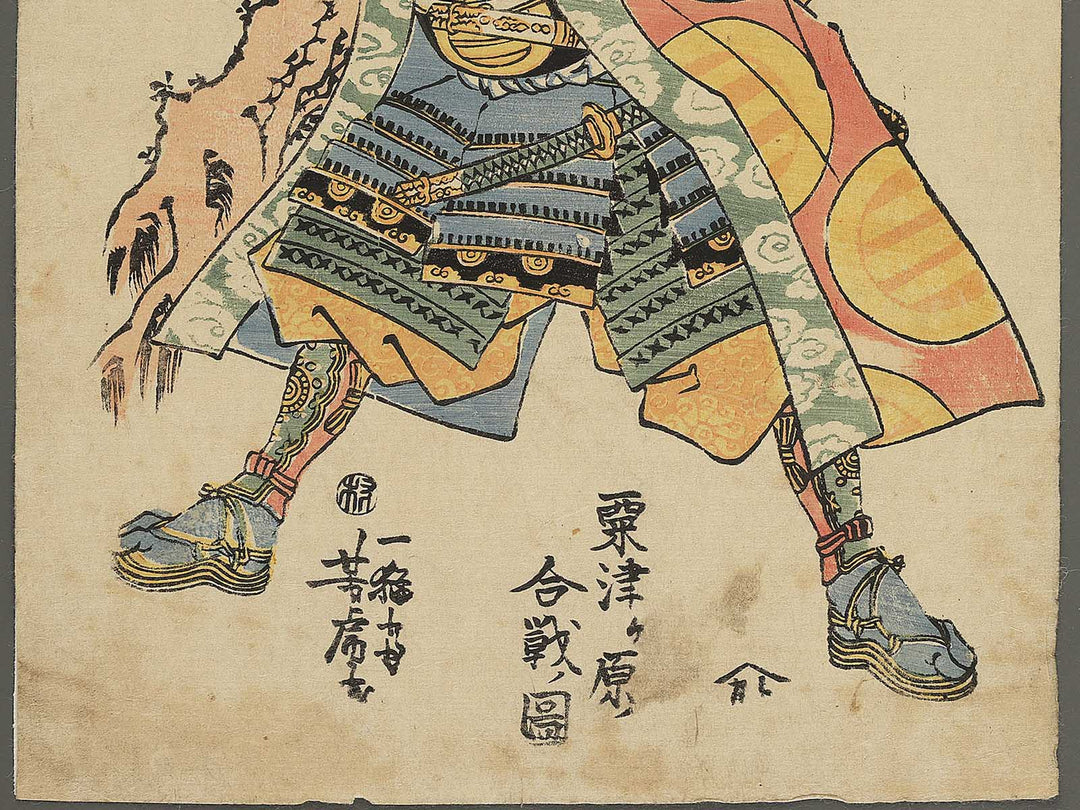 粟津ヶ原ノ
合戦ノ圖
一猛齋
芳虎画